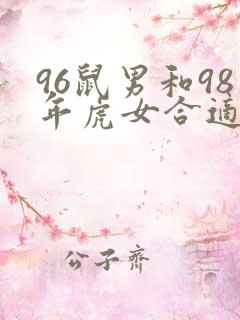 96鼠男和98
年虎女合适
公子齊